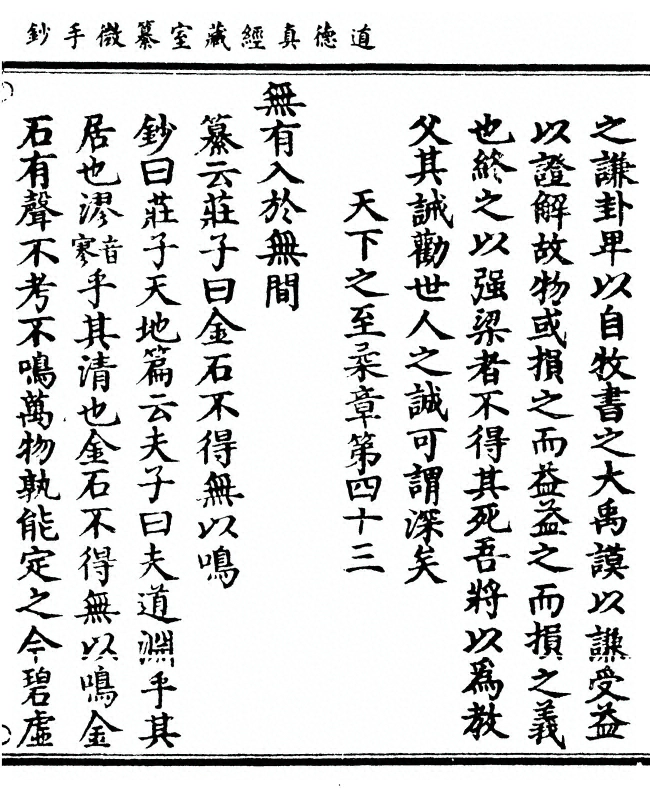 道德真經藏室纂微手鈔
之謙卦卑以自牧書之大禹謨以謙受益
以證解故物或損之而益益之而損之義
也終之以强梁者不得其死吾將以爲教
父其誠勸世人之誠可謂深矣
天下之至柔章第四十三
無有入於無間
纂云莊子曰金石不得無以鳴
鈔曰莊子天地篇云夫子曰夫道淵乎其
居也漻音寥乎其清也金石不得無以鳴金
石有聲不考不鳴萬物孰能定之今碧虛